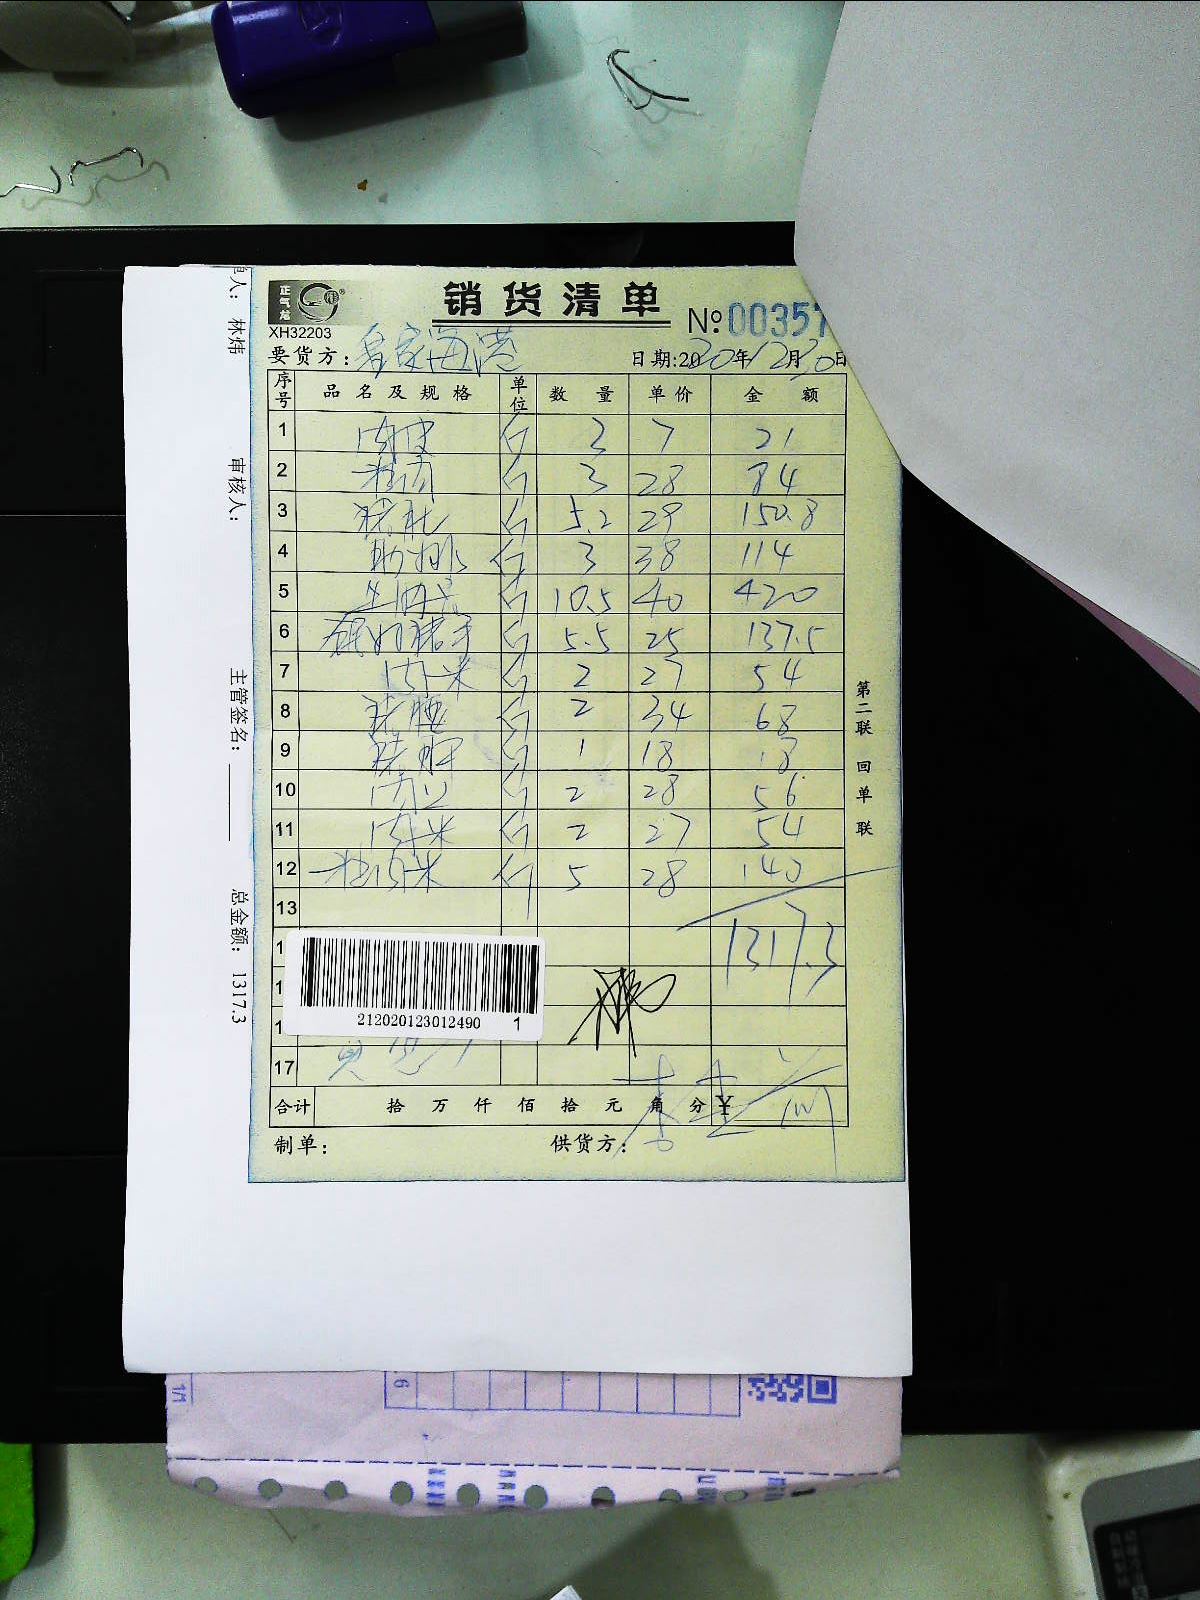 正气龙
销货清单
XH32203
№ 00357
要货方：
日期:2020年12月30日
序号 品名及规格 单位 数量 单价 金额
1 肉皮 斤 3 7 21
2 斤 3 28 84
3 斤 5.2 29 150.8
4 肋排 斤 3 38 114
5 斤 10.5 40 420
6 猪手 斤 5.5 25 137.5
7 肉米 斤 2 27 54
8 斤 2 34 68
9 猪肝 斤 1 18 18
10 斤 2 28 56
11 肉米 斤 2 27 54
12 肉米 斤 5 28 140
13
1317.3
212020123012490 1
17
合计 拾 万 仟 佰 拾 元 角 分 ¥
制单： 供货方：
第二联 回单联
单人： 林炜
审核人：
主管签名：
总金额： 1317.3
1/1